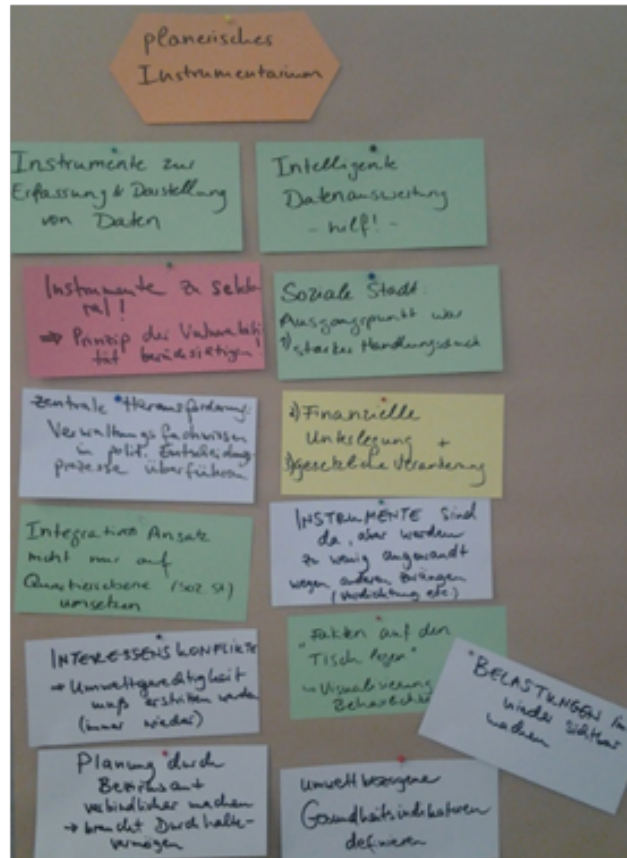 planerisches
Instrumentarium
Instrumente zur
Erfassung & Darstellung
von Daten
Intelligente
Datenauswertung
- hilf! -
Instrumente zu sekto
ral!
⇒ Prinzip der Vulnerabili
tät berücksichtigen!
Soziale Stadt:
Ausgangspunkt war
1) starker Handlungsdruck
zentrale Herausforderung:
Verwaltungsfachwissen
in polit. Entscheidungs-
prozesse überführen
2) Finanzielle
Unterlegung +
3) gesetzliche Verankerung
Integrativen Ansatz
nicht nur auf
Quartiersebene (soz. St.)
umsetzen
INSTRUMENTE sind
da, aber werden
zu wenig angewandt
wegen anderen Zwängen
(Verdichtung etc.)
INTERESSENSKONFLIKTE
→ Umweltgerechtigkeit
muß erstritten werden
(immer wieder)
"Fakten auf den
Tisch legen"
↳ Visualisierung
BELASTUNGEN
wieder sichtbar
machen
Planung durch
Bezirksamt
verbindlicher machen
→ braucht Durchhalte-
vermögen
umweltbezogene
Gesundheitsindikatoren
definieren